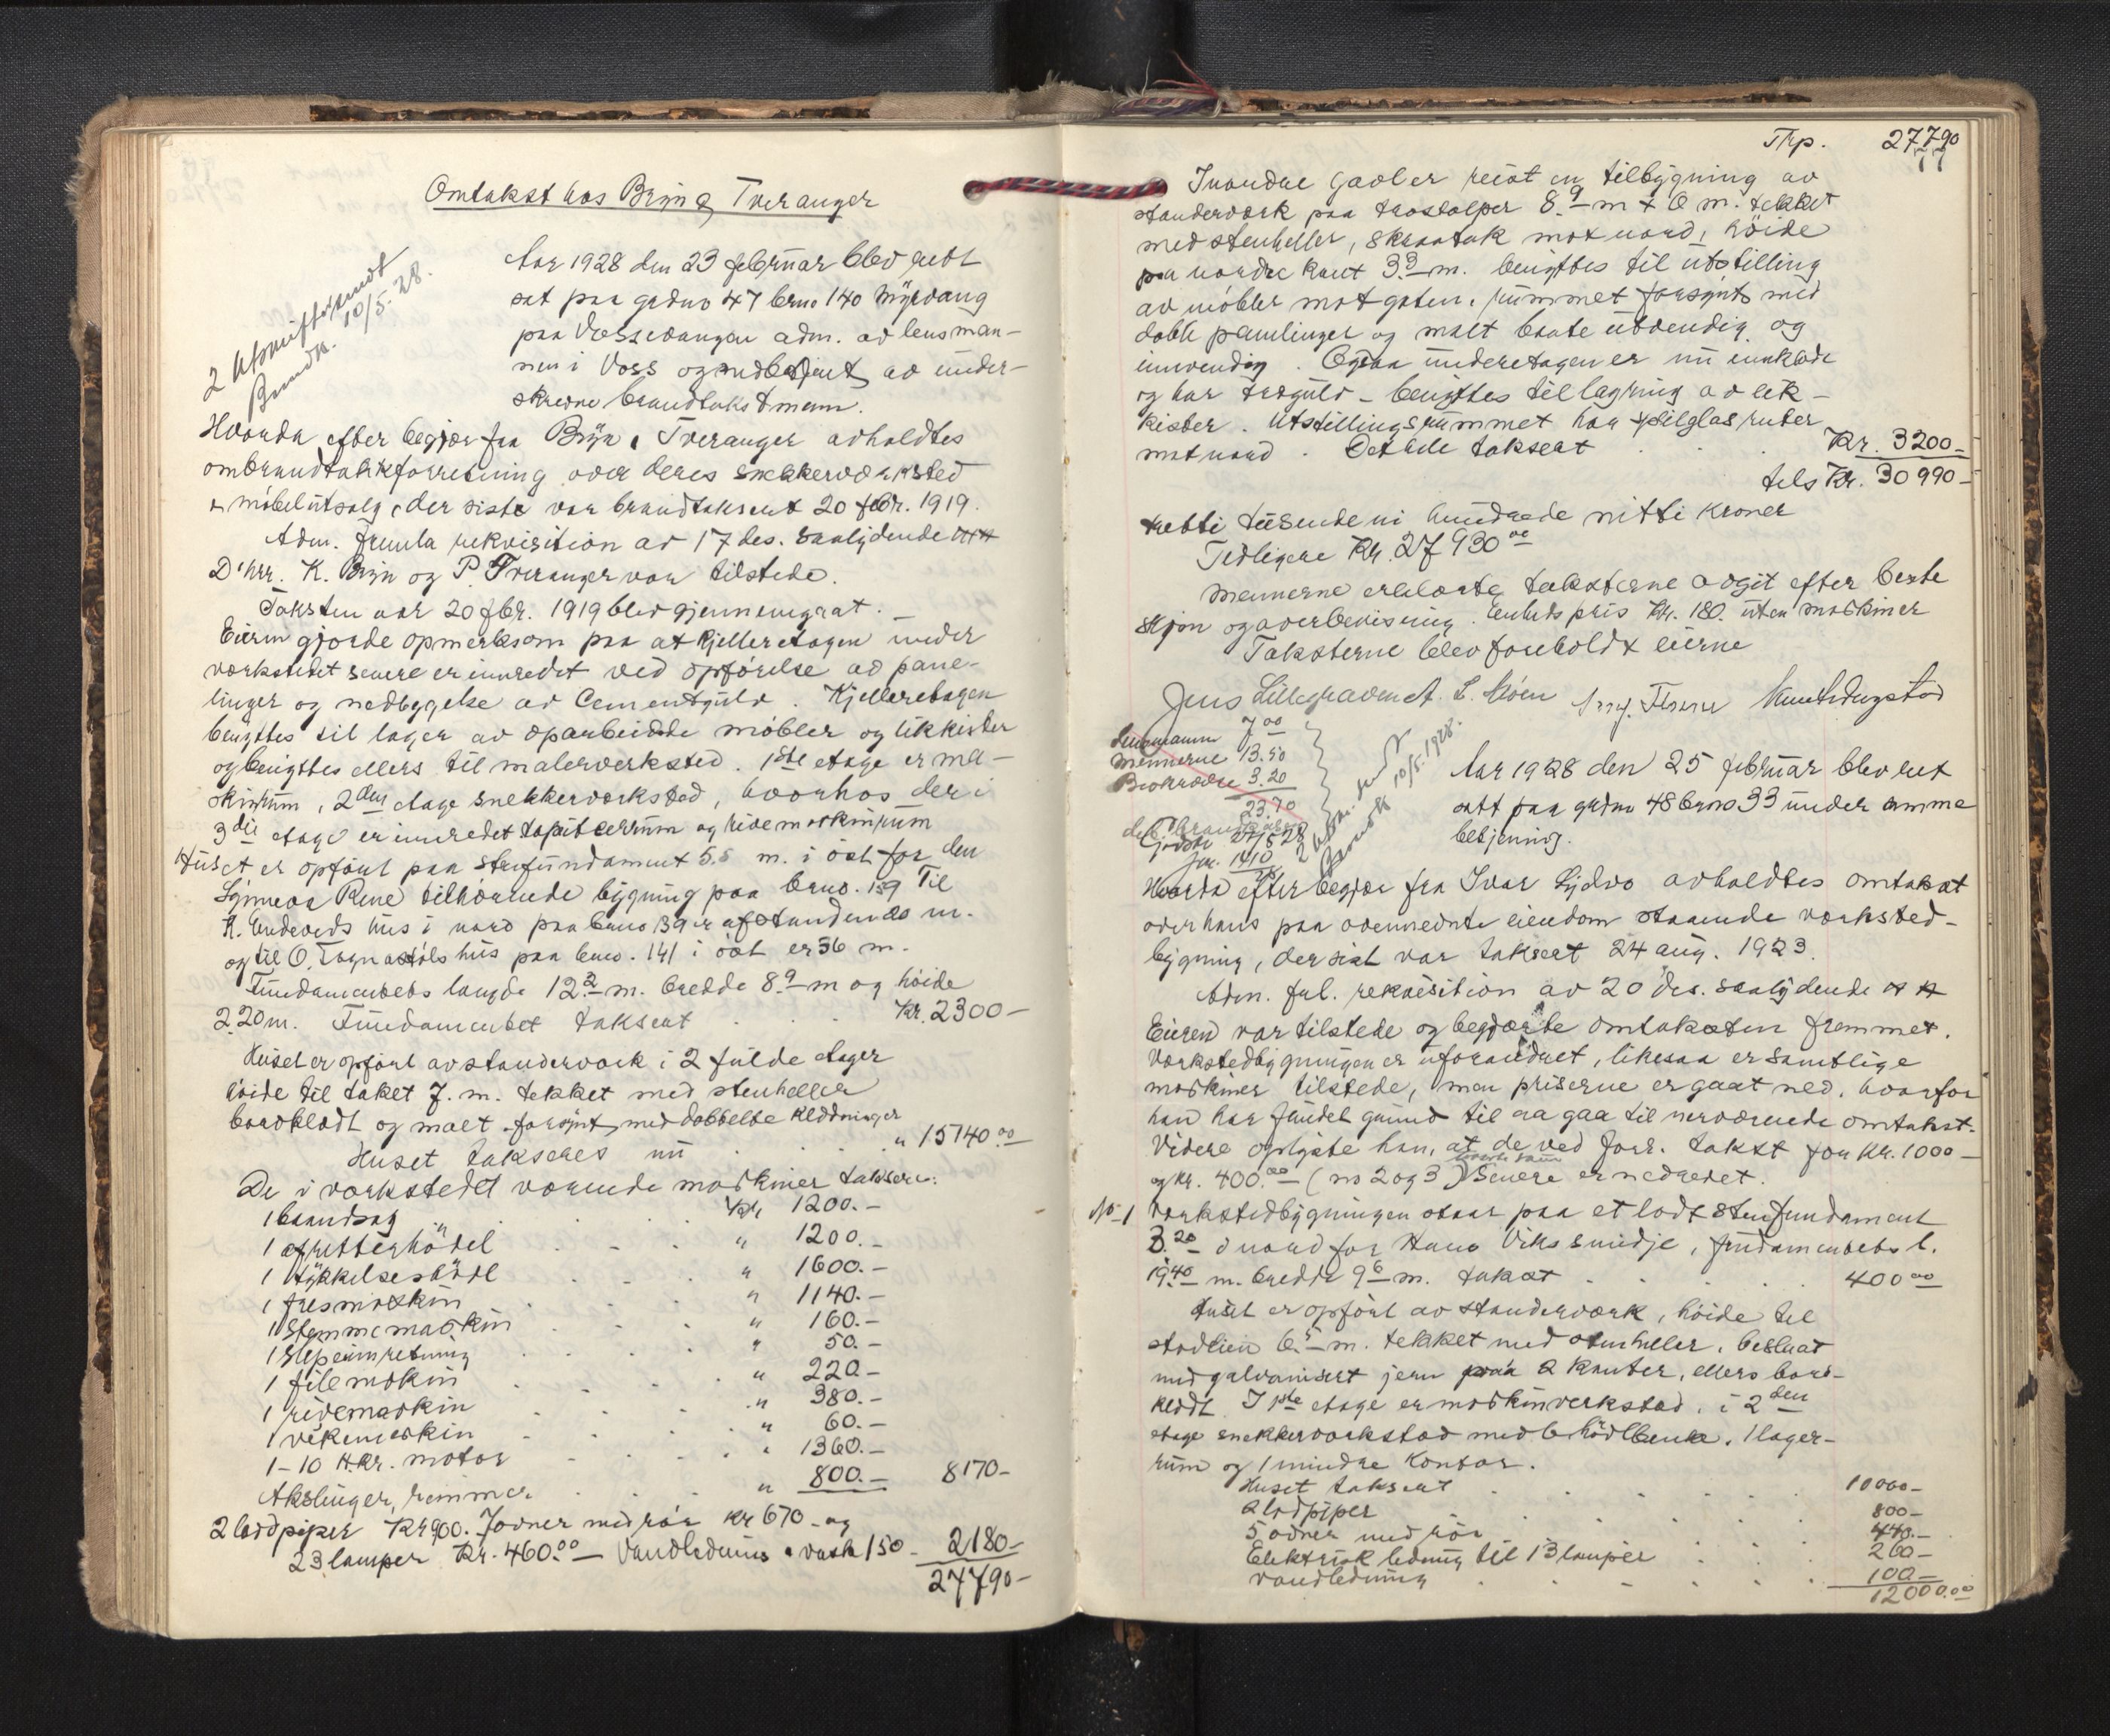 Omtakst hos Bryn & Tveranger
2 utskrifter sendt
Brandk. 10/5.28.
Aar 1928 den 23 februar blev rett
sat paa grdno 47 brno 140 Myrvang
paa Vossevangen adm. av lensman-
nen i Voss og medbetjent av under-
skrevne brandtakstmenn.
Hvorda efter begjær fra Bryn & Tveranger avholdtes
ombrandtakstforretning over deres snekkerverksted
& møbelutsalg, der sist var brandtaksert 20 febr. 1919.
Adm. fremla rekvisition av 17 des. saalydende
D'hrr. K. Bryn og P. Tveranger var tilstede.
Taksten av 20 fbr. 1919 blev gjennemgaat.
Eieren gjorde opmerksom paa at Kjelleretagen under
verkstedet senere er innredet ved opførelse av pane-
linger og nedbyggelse av Cementgulv. Kjelleretagen
benyttes til lager av oparbeidede møbler og likkister
og benyttes ellers til malerverksted. 1ste etage er ma-
skinrum, 2den etage snekkerverksted, hvorhos der i
3die etage er innredet tapetserrum og rivemaskinrum
Huset er opført paa stenfundament 5.5 m. i øst for den
Rene tilhørende bygning paa brno. 159 Til
K. Endeveds hus i nord paa brno 139 er afstanden 20 m.
og til O. hus paa brno. 141 i øst er 36 m.
Fundamentets længde 12.2 m. bredde 8.9 m og høide
2.20 m. Fundamentet taksert . . . Kr. 2300 –
Huset er opført av standerverk i 2 fulde etager
høide til taket 7. m. tekket med stenheller
bordklædt og malt. forsynt med dobbelte kledninger
Huset takseres nu . . . " 15140.00
De i verkstedet værende maskiner taksere:
1 baandsag . . . Kr. 1200.–
1 afretterhøvel . . . " 1200.–
1 tykkelseshøvl . . . " 1600.–
1 fresmaskin . . . " 1140.–
1 stemmemaskin . . . " 160.–
1 slipeinretning . . . " 50.–
1 filemaskin . . . " 220.–
1 rivemaskin . . . " 380.–
1 vekemaskin . . . " 60.–
1–10 H.Kr. motor . . . " 1360.–
Akslinger, remmer . . . " 800.– 8170–
2 lodpiper Kr 900. 7 ovner med rør Kr 670 – og
23 lamper Kr. 460.00 – Vandledning & vask 150 – 2180–
27790–
Trp. 27790
77
I nordre gavl er reist en tilbygning av
standerverk paa trestolper 8.9 m x 6 m. tekket
med stenheller, skraatak mot nord, høide
paa nordre kant 3.3 m. benyttes til utstilling
av møbler mot gaten. rummet forsynt med
dobbl panelinger og malt baate utvendig og
innvendig. Ogsaa underetagen er nu innklædt
og har tregulv – benyttes til lagring av lik-
kister. Utstillingsrummet har speilglasruter
mot nord. Det hele taksert . . . Kr. 3200–
tils Kr. 30990–
tretti tusende ni hundrede nitti kroner
Tidligere Kr. 27930.00
Mennerne erklærte taksterne avgit efter beste
skjøn og overbevisning. Enhedspris Kr. 180. uten maskiner
Taksterne blev foreholdt eierne
Jens Lillegraven A. L. Møen
Lensmann 7.00
Mennerne 13.50
Brokradse 3.20
23.70
27/5 28
jnr. 1410
2 sendt
Brandk 10/5.1928.
Aar 1928 den 25 februar blev ret
satt paa grdno 48 brno 33 under samme
betjening.
Hvorda efter begjær fra Ivar Gjelvo avholdtes omtakst
over hans paa ovennevnte eiendom staaende verksted-
bygning, der sist var taksert 24 aug. 1923.
Adm. frl. rekvisition av 20 des. saalydende
Eieren var tilstede og begjærte omtaksten fremmet.
Verkstedbygningen er uforandret, likesaa er samtlige
maskiner tilstede, men priserne er gaat ned, hvorfor
han har fundet grund til aa gaa til nerværende omtakst.
Videre oplyste han, at de ved forr. takst for Kr. 1000–
og Kr. 400.00 – (no 2 og 3) senere er nedrevet.
No 1 Verkstedbygningen staar paa et lodt stenfundament
3.20 i nord for Hans Viks smidje, fundamentets l.
19.40 m. bredde 9.6 m. takst . . . 400.00
Huset er opført av standerverk, høide til
6.5 m. tekket med stenheller, beslaat
med galvanisert jern paa 2 kanter, ellers bord-
kledt. I 1ste etage er maskinverksted, i 2den
etage snekkerverksted med 6 høvlbenke, 1 lager-
rum og 1 mindre Kontor.
Huset taksert . . . 10000–
2 lodpiper . . . 800–
5 ovner med rør . . . 440.–
Elektrisk ledning til 13 lamper . . . 260–
vandledning . . . 100–
12000.00